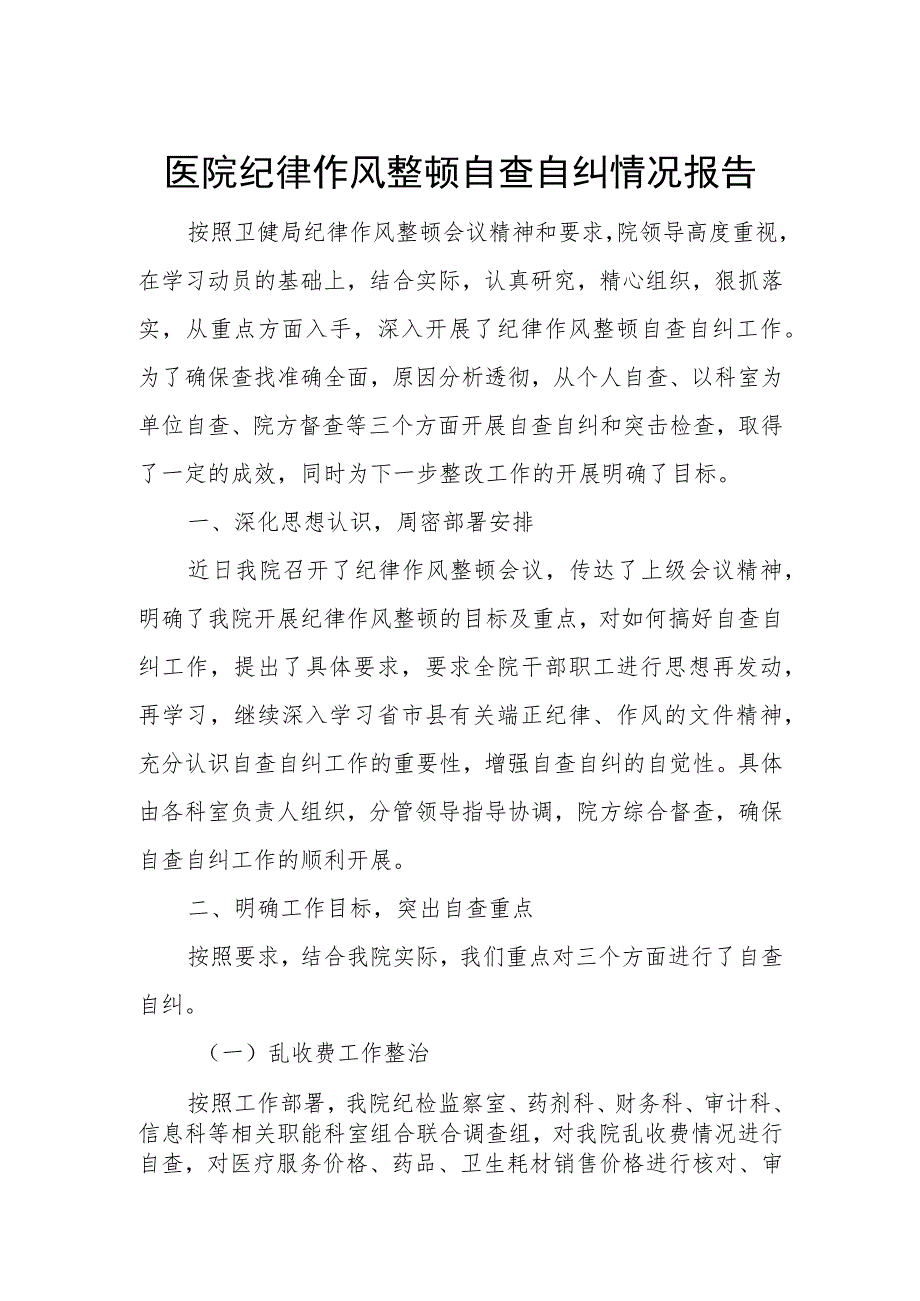 医院纪律作风整顿自查自纠情况报告
按照卫健局纪律作风整顿会议精神和要求,院领导高度重视，
在学习动员的基础上，结合实际，认真研究，精心组织，狠抓落
实，从重点方面入手，深入开展了纪律作风整顿自查自纠工作。
为了确保查找准确全面，原因分析透彻，从个人自查、以科室为
单位自查、院方督查等三个方面开展自查自纠和突击检查，取得
了一定的成效，同时为下一步整改工作的开展明确了目标。
一、深化思想认识，周密部署安排
近日我院召开了纪律作风整顿会议，传达了上级会议精神，
明确了我院开展纪律作风整顿的目标及重点，对如何搞好自查自
纠工作，提出了具体要求，要求全院干部职工进行思想再发动，
再学习，继续深入学习省市县有关端正纪律、作风的文件精神，
充分认识自查自纠工作的重要性，增强自查自纠的自觉性。具体
由各科室负责人组织，分管领导指导协调，院方综合督查，确保
自查自纠工作的顺利开展。
二、明确工作目标，突出自查重点
按照要求，结合我院实际，我们重点对三个方面进行了自查
自纠。
（一）乱收费工作整治
按照工作部署，我院纪检监察室、药剂科、财务科、审计科、
信息科等相关职能科室组合联合调查组，对我院乱收费情况进行
自查，对医疗服务价格、药品、卫生耗材销售价格进行核对、审